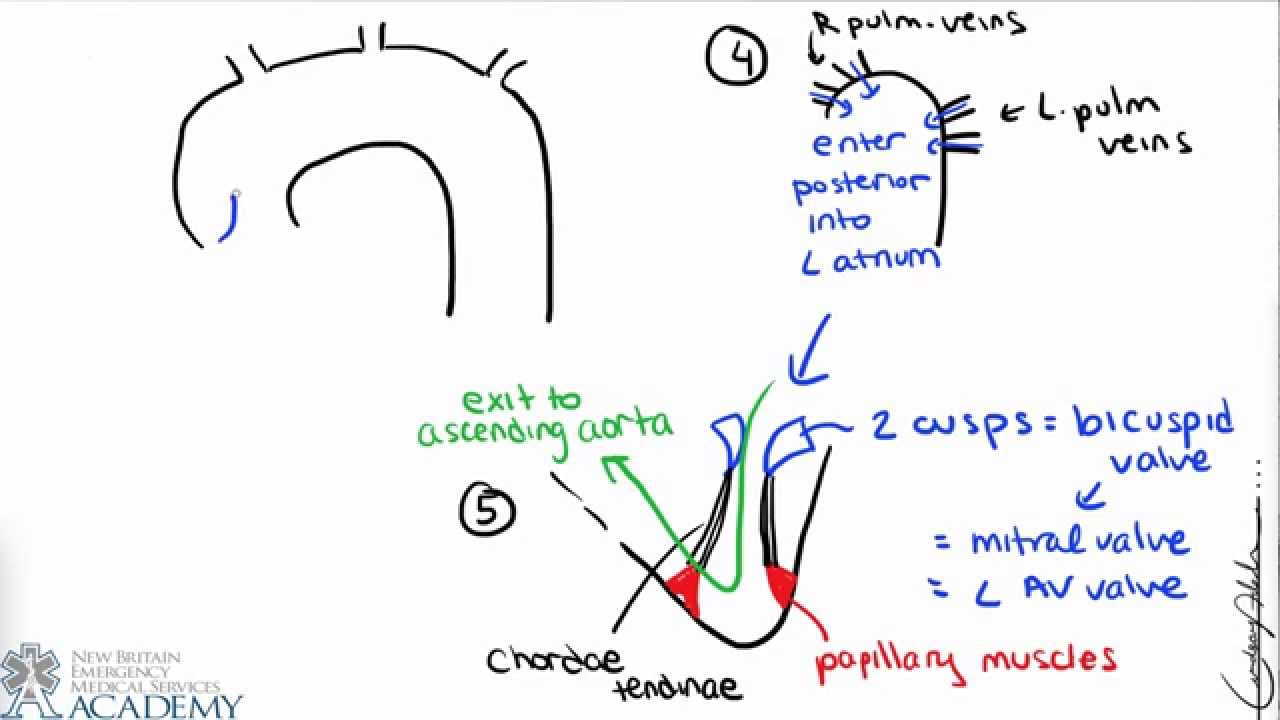 4
R pulm. veins
L. pulm
veins
enter
posterior
into
L atrium
exit to
ascending aorta
2 cusps = bicuspid
valve
= mitral valve
= L AV valve
5
chordae
tendinae
papillary muscles
NEW BRITAIN
EMERGENCY
MEDICAL SERVICES
ACADEMY